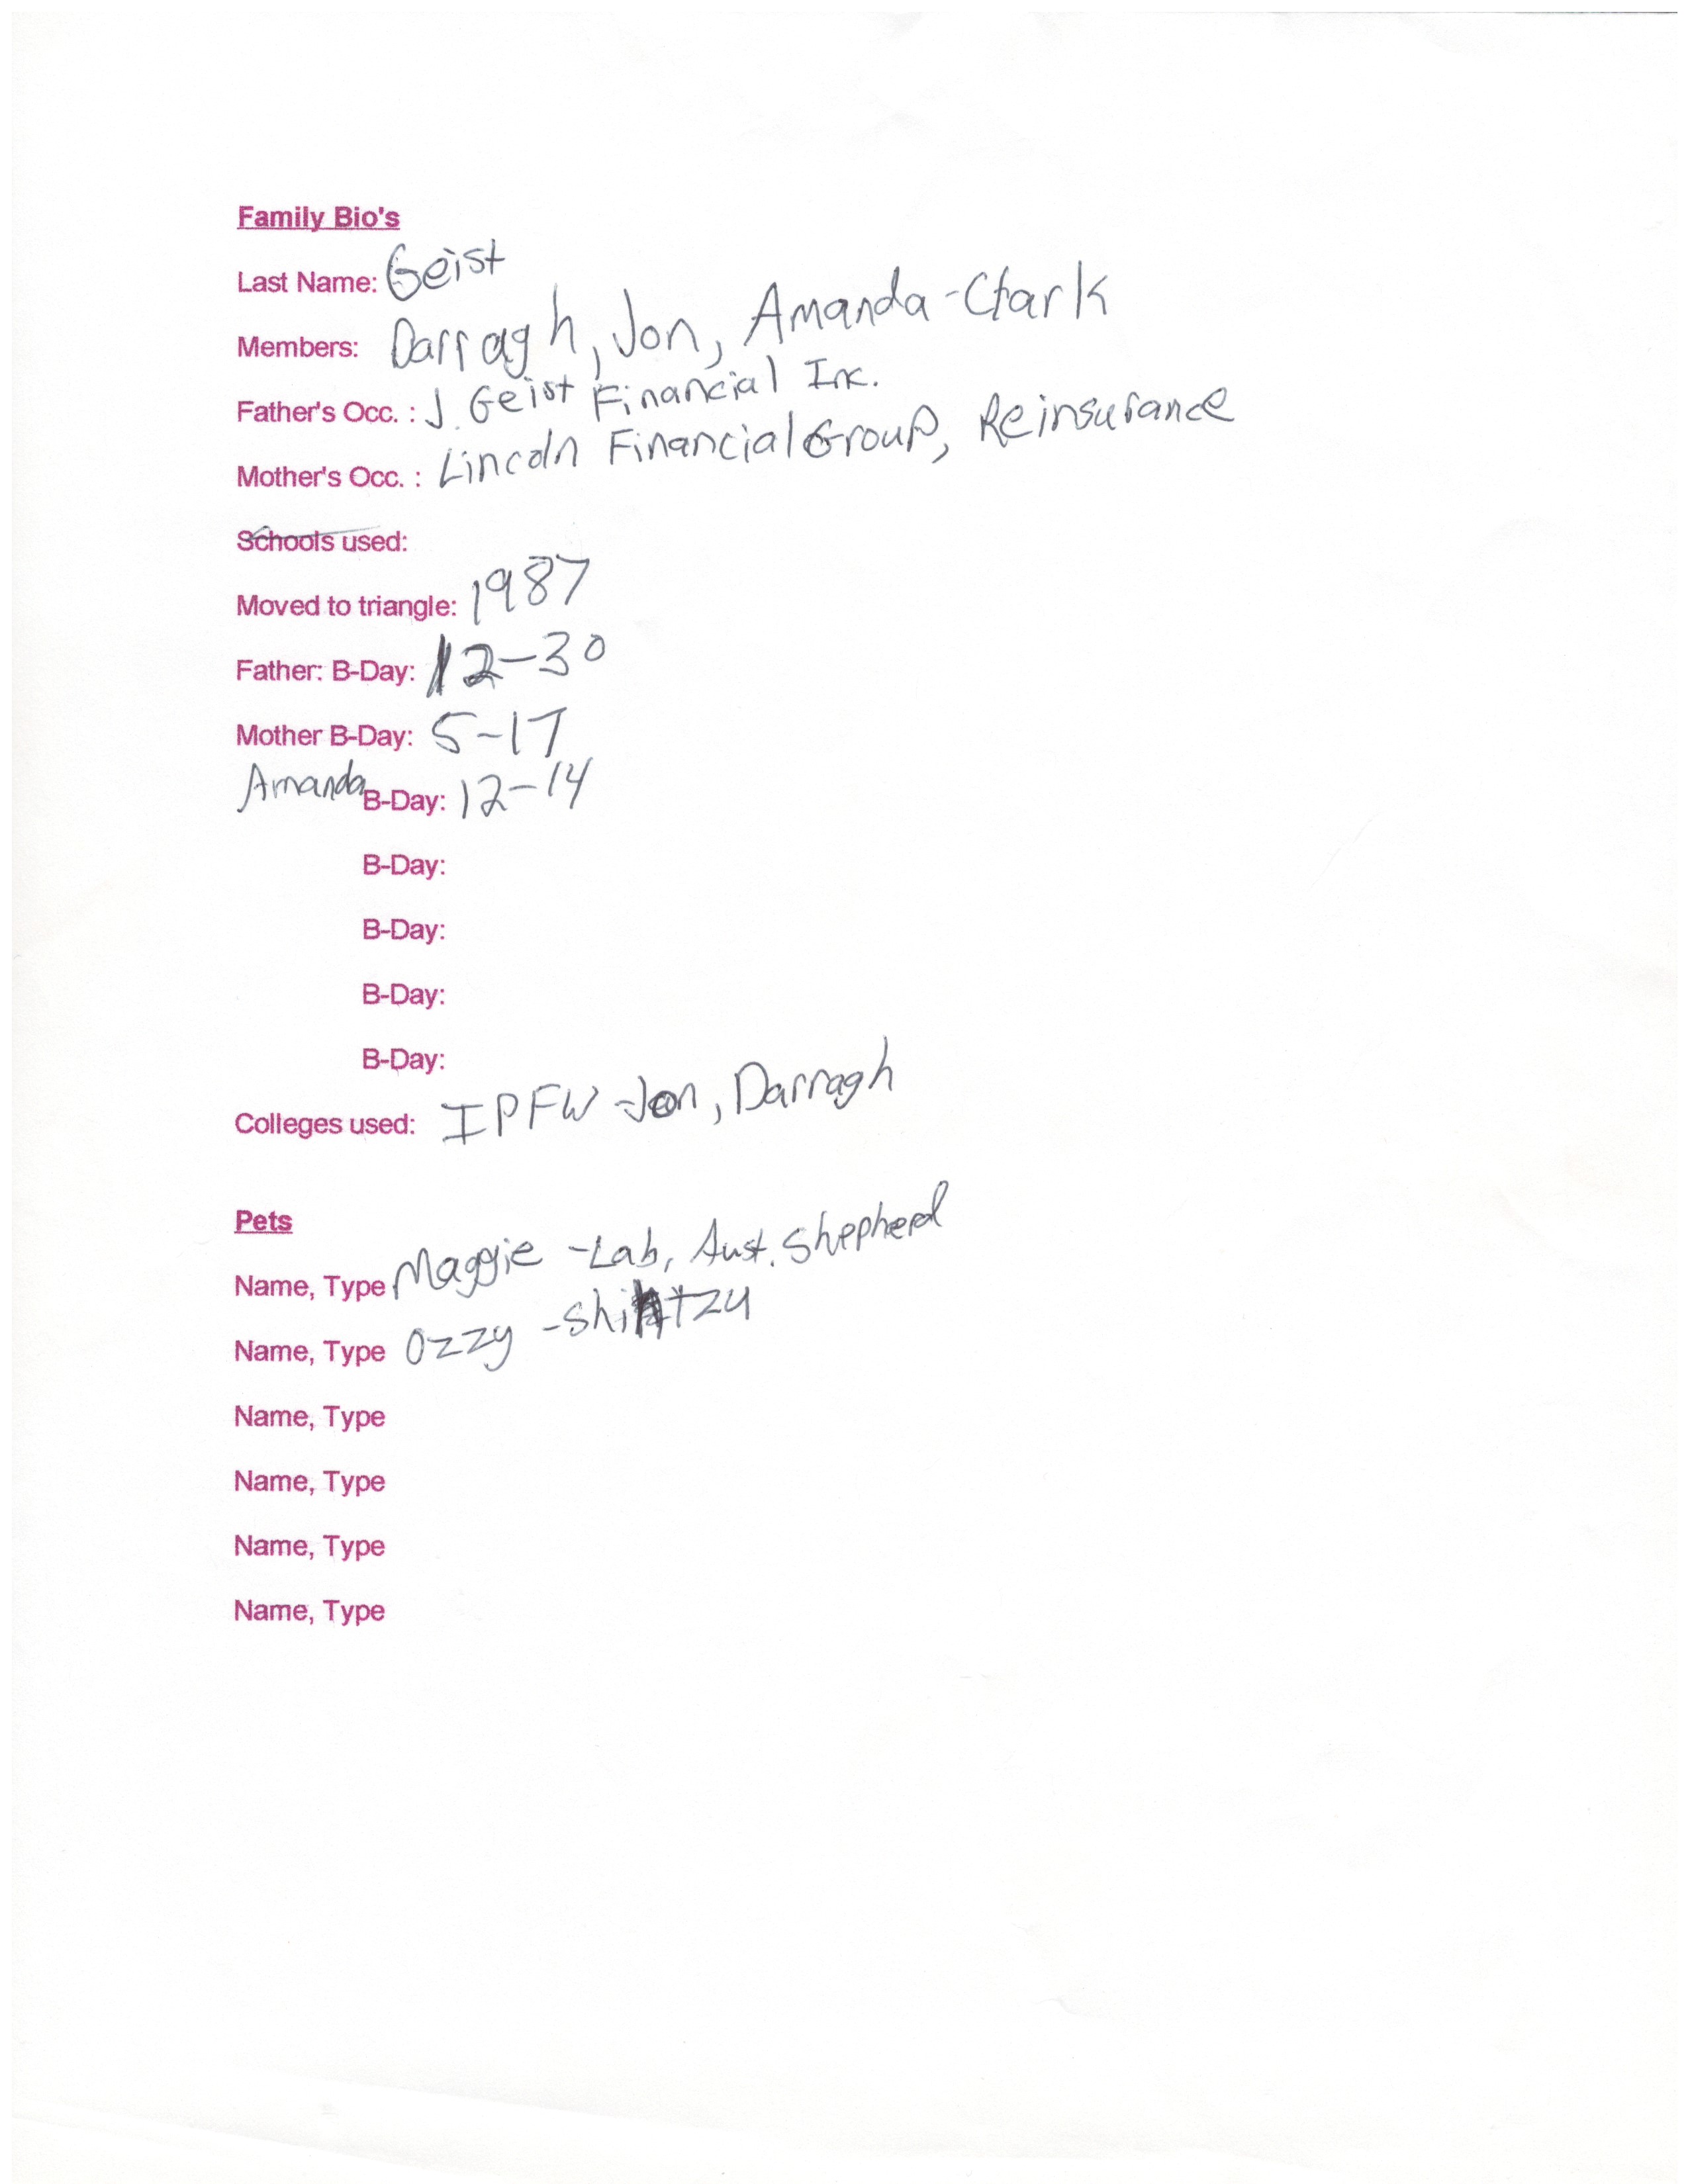 Family Bio's
Last Name: Geist
Members: Darragh, Jon, Amanda-Clark
Father's Occ. : J. Geist Financial Inc.
Mother's Occ. : Lincoln Financial Group, Reinsurance
Schools used:
Moved to triangle: 1987
Father: B-Day: 12-30
Mother B-Day: 5-17
Amanda B-Day: 12-14
B-Day:
B-Day:
B-Day:
B-Day:
Colleges used: IPFW-Jon, Darragh
Pets
Name, Type Maggie -Lab, Aust. Shepherd
Name, Type Ozzy -shihtzu
Name, Type
Name, Type
Name, Type
Name, Type